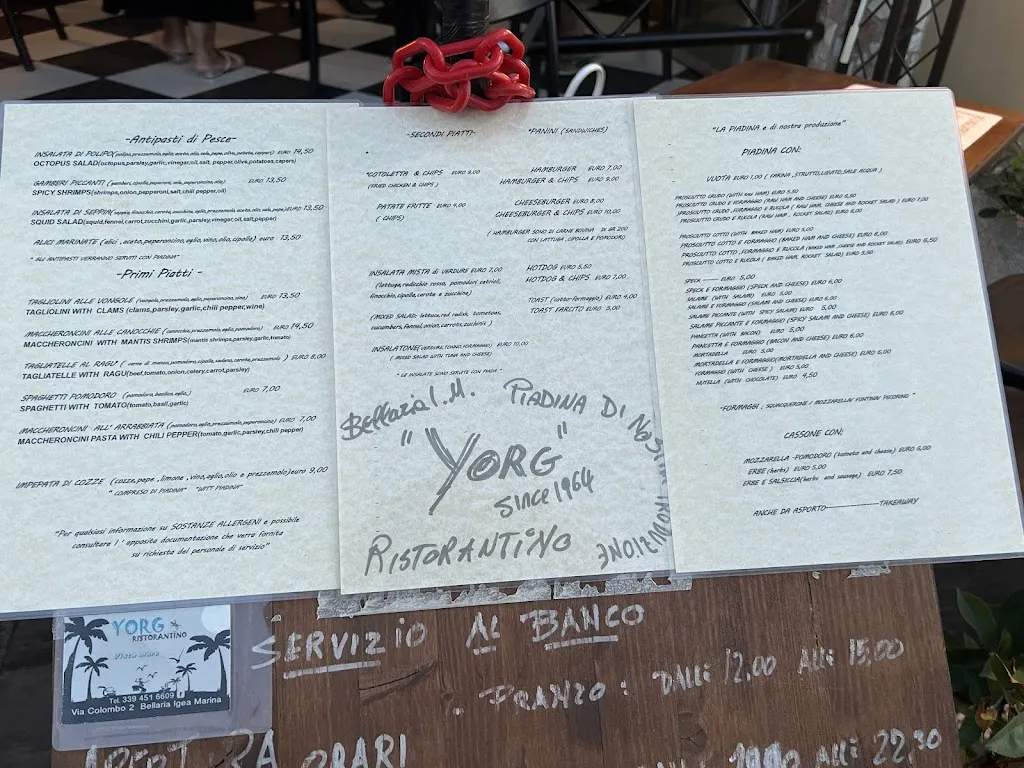 -Antipasti di Pesce-
INSALATA DI POLIPO(polipo,prezzemolo,aglio,aceto,olio,sale,pepe,olive,patate,capperi) EURO 14,50
OCTOPUS SALAD(octopus,parsley,garlic,vinegar,oil,salt,pepper,olive,potatoes,capers)
GAMBERI PICCANTI (gamberi,cipolla,peperoni,sale,peperoncino,olio) EURO 13,50
SPICY SHRIMPS(shrimps,onion,pepperoni,salt,chili pepper,oil)
INSALATA DI SEPPIA(seppia finocchio,carote,zucchine,aglio,prezzemolo,aceto,olio,sale,pepe)EURO 13,50
SQUID SALAD(squid,fennel,carrot,zucchini,garlic,parsley,vinegar,oil,salt,pepper)
ALICI MARINATE (alici , aceto, peperoncino, aglio, vino, olio, cipolle) euro 13,50
" GLI ANTIPASTI VERRANNO SERVITI CON PIADINA"
-Primi Piatti -
TAGLIOLINI ALLE VONGOLE (vongole,prezzemolo,aglio,peperoncino,vino) EURO 13,50
TAGLIOLINI WITH CLAMS(clams,parsley,garlic,chili pepper,wine)
MACCHERONCINI ALLE CANOCCHIE (canocchie,prezzemolo,aglio,pomodoro) EURO 14,50
MACCHERONCINI WITH MANTIS SHRIMPS(mantis shrimps,parsley,garlic,tomato)
TAGLIATELLE AL RAGU' ( carne di manzo,pomodoro,cipolla,sedano,carote,prezzemolo ) EURO 8,00
TAGLIATELLE WITH RAGU(beef,tomato,onion,celery,carrot,parsley)
SPAGHETTI POMODORO (pomodoro,basilico,aglio,) EURO 7,00
SPAGHETTI WITH TOMATO(tomato,basil,garlic)
MACCHERONCINI ALL' ARRABBIATA (pomodoro,aglio,prezzemolo,peperoncino) EURO 7,00
MACCHERONCINI PASTA WITH CHILI PEPPER(tomato,garlic,parsley,chili pepper)
IMPEPATA DI COZZE (cozze,pepe ,limone , vino,aglio,olio e prezzemolo)euro 9,00
" COMPRESO DI PIADINA" "WITT PIADINA"
"Per qualsiasi informazione su SOSTANZE ALLERGENI e possibile
consultare l ' apposita documentazione che verra fornita
su richiesta del personale di servizio"
-SECONDI PIATTI-
"COTOLETTA & CHIPS EURO 9,00
(FRIED CHICKEN & CHIPS )
PATATE FRITTE EURO 4,00
( CHIPS)
INSALATA MISTA di VERDURE EURO 7,00
(lattuga,radicchio rosso, pomodori,cetrioli,
finocchio,cipolla,carote e zucchine)
(MIXED SALAD: lettuce,red radish, tomatoes,
cucumbers,fennel,onion,carrots,zucchinis )
INSALATONE(VERDURE,TONNO,FORMAGGIO) EURO 10,00
( MIXED SALAD WITH TUNA AND CHEESE)
" LE INSALATE SONO SERVITE CON PIADA "
"PANINI (SANDWICHES)
HAMBURGER EURO 7,00
HAMBURGER & CHIPS EURO 9,00
CHEESEBURGER EURO 8,00
CHEESEBURGER & CHIPS EURO 10,00
( HAMBURGER SONO DI CARNE BOVINA DI GR 200
CON LATTUGA ,CIPOLLA E POMODORO)
HOTDOG EURO 5,50
HOTDOG & CHIPS EURO 7,00
TOAST (cotto-formaggio) EURO 4,00
TOAST FARCITO EURO 5,00
Bellaria I.M.
PIADINA DI NOSTRA PRODUZIONE
"YORG"
Since 1964
RISTORANTINO
"LA PIADINA e di nostra produzione"
PIADINA CON:
VUOTA EURO 1,00 ( FARINA ,STRUTTO,LIEVITO,SALE ACQUA )
PROSCIUTTO CRUDO (WITH RAW HAM) EURO 5,50
PROSCIUTTO CRUDO E FORMAGGIO (RAW HAM AND CHEESE) EURO 6,50
PROSCIUTTO CRUDO ,FORMAGGIO E RUKOLA ( RAW HAM, CHEESE AND ROCKET SALAD ) EURO 7,00
PROSCIUTTO CRUDO E RUCOLA ( RAW HAM , ROCKET SALAD) EURO 6,00
PROSCIUTTO COTTO (WITH BAKED HAM) EURO 5,00
PROSCIUTTO COTTO E FORMAGGIO (BAKED HAM AND CHEESE) EURO 6,00
PROSCIUTTO COTTO ,FORMAGGIO E RUCOLA (BAKED HAM ,CHEESE AND ROCKET SALAD) EURO 6,50
PROSCIUTTO COTTO E RUCOLA ( BAKED HAM, ROCKET SALAD) EURO 5,50
SPECK ------- EURO 5,00
SPECK E FORMAGGIO (SPECK AND CHEESE) EURO 6,00
SALAME (WITH SALAMI) EURO 5,00
SALAME E FORMAGGIO (SALAMI AND CHEESE) EURO 6,00
SALAME PICCANTE (WITH SPICY SALAMI) EURO 5,00
SALAME PICCANTE E FORMAGGIO (SPICY SALAMI AND CHEESE) EURO 6,00
PANCETTA (WITH BACON) EURO 5,00
PANCETTA E FORMAGGIO (BACON AND CHEESE) EURO 6,00
MORTADELLA EURO 5,00
MORTADELLA E FORMAGGIO(MORTADELLA AND CHEESE) EURO 6,00
FORMAGGIO (WITH CHEESE ) EURO 5,00
NUTELLA (WITH CHOCOLATE) EURO 4,50
"FORMAGGI : SQUACQUERONE / MOZZARELLA/ FONTINA/ PECORINO "
CASSONE CON:
MOZZARELLA -POMODORO (tomato and cheese) EURO 6,00
ERBE (herbs) EURO 5,00
ERBE E SALSICCIA(herbs and sausage) EURO 7,50
ANCHE DA ASPORTO---------------TAKEAWAY
YORG
RISTORANTINO
Vista Mare
Tel. 339 451 6609
Via Colombo 2 Bellaria Igea Marina
SERVIZIO AL BANCO
PRANZO : DALLE 12,00 ALLE 15,00
APERTURA ORARI
ALLE 22,30